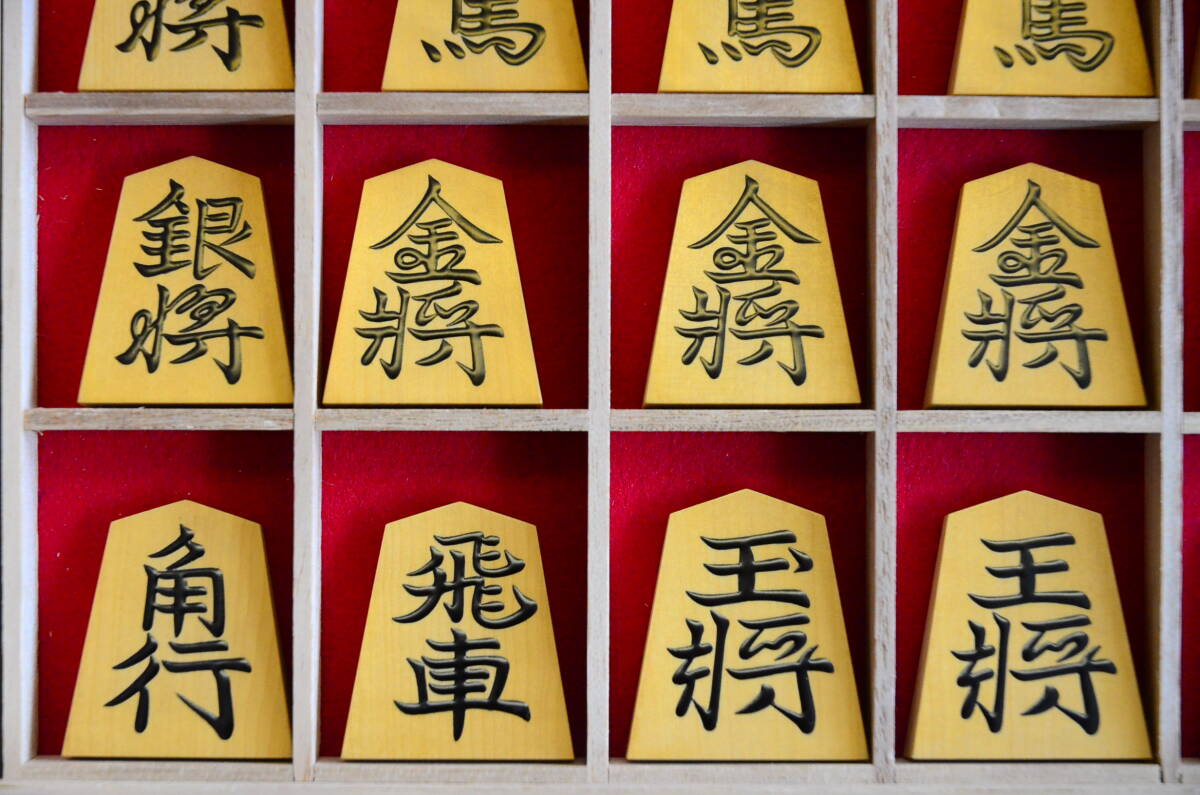 将
馬
馬
馬
銀
將
金
將
金
將
金
將
角
行
飛
車
玉
將
王
將